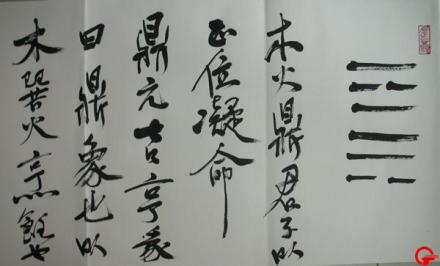 木火鼎君子以
正位凝命
鼎元吉亨彖
曰鼎象也以
木巽火烹飪也